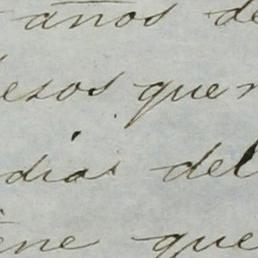 años de
esos que
dias del
ene que